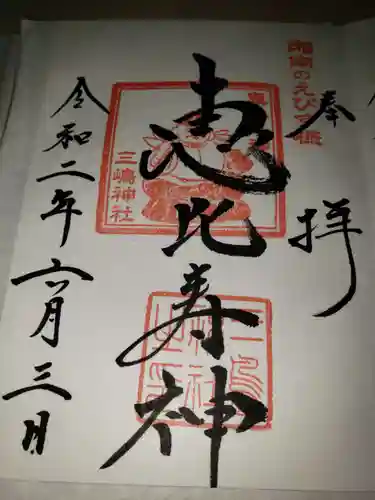 奉拝
湘南のえびす様
恵比寿神
三嶋神社
令和二年六月三日